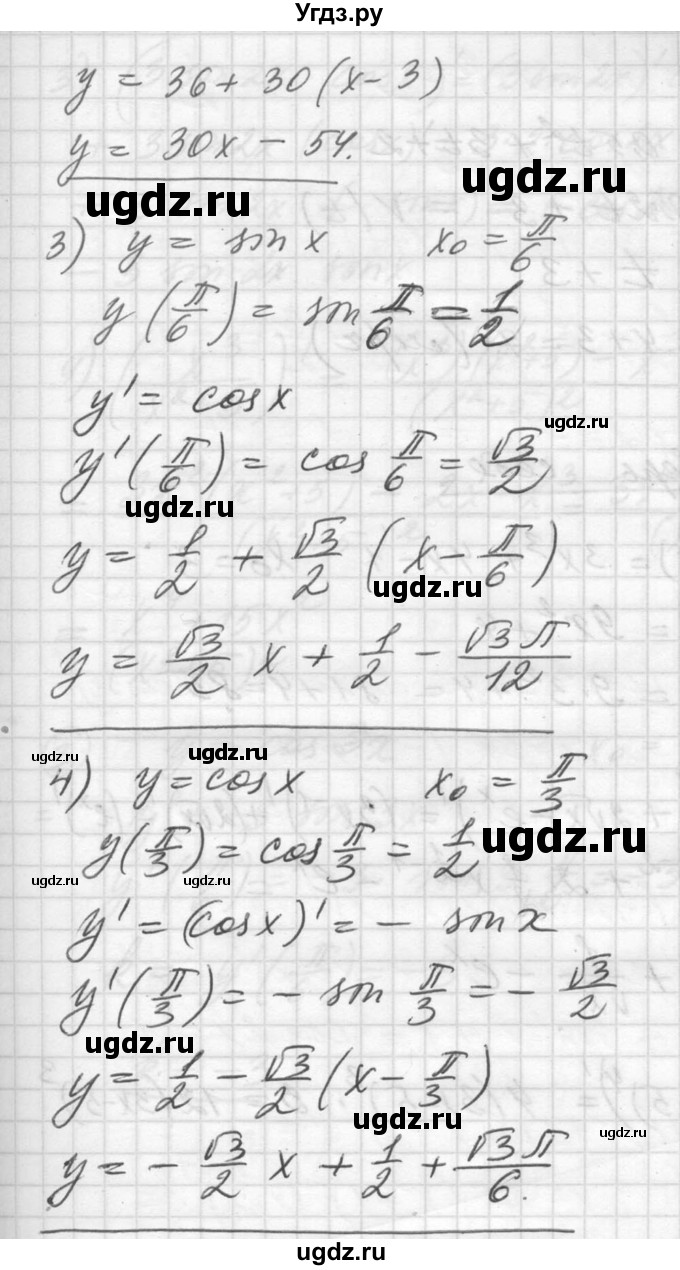 Угдз.ру
y = 36 + 30(x - 3)
y = 30x - 54.
ugdz.ru ugdz.ru
3) y = sin x x₀ = π/6
y(π/6) = sin π/6 = 1/2
y' = cos x
ugdz.ru
y'(π/6) = cos π/6 = √3/2
ugdz.ru
y = 1/2 + √3/2 (x - π/6)
ugdz.ru
y = √3/2 x + 1/2 - √3π/12
ugdz.ru ugdz.ru
4) y = cos x x₀ = π/3
y(π/3) = cos π/3 = 1/2
ugdz.ru
ugdz.ru ugdz.ru
y' = (cos x)' = - sin x
y'(π/3) = - sin π/3 = - √3/2
ugdz.ru
y = 1/2 - √3/2 (x - π/3)
ugdz.ru ugdz.ru
y = - √3/2 x + 1/2 + √3π/6.
ugdz.ru